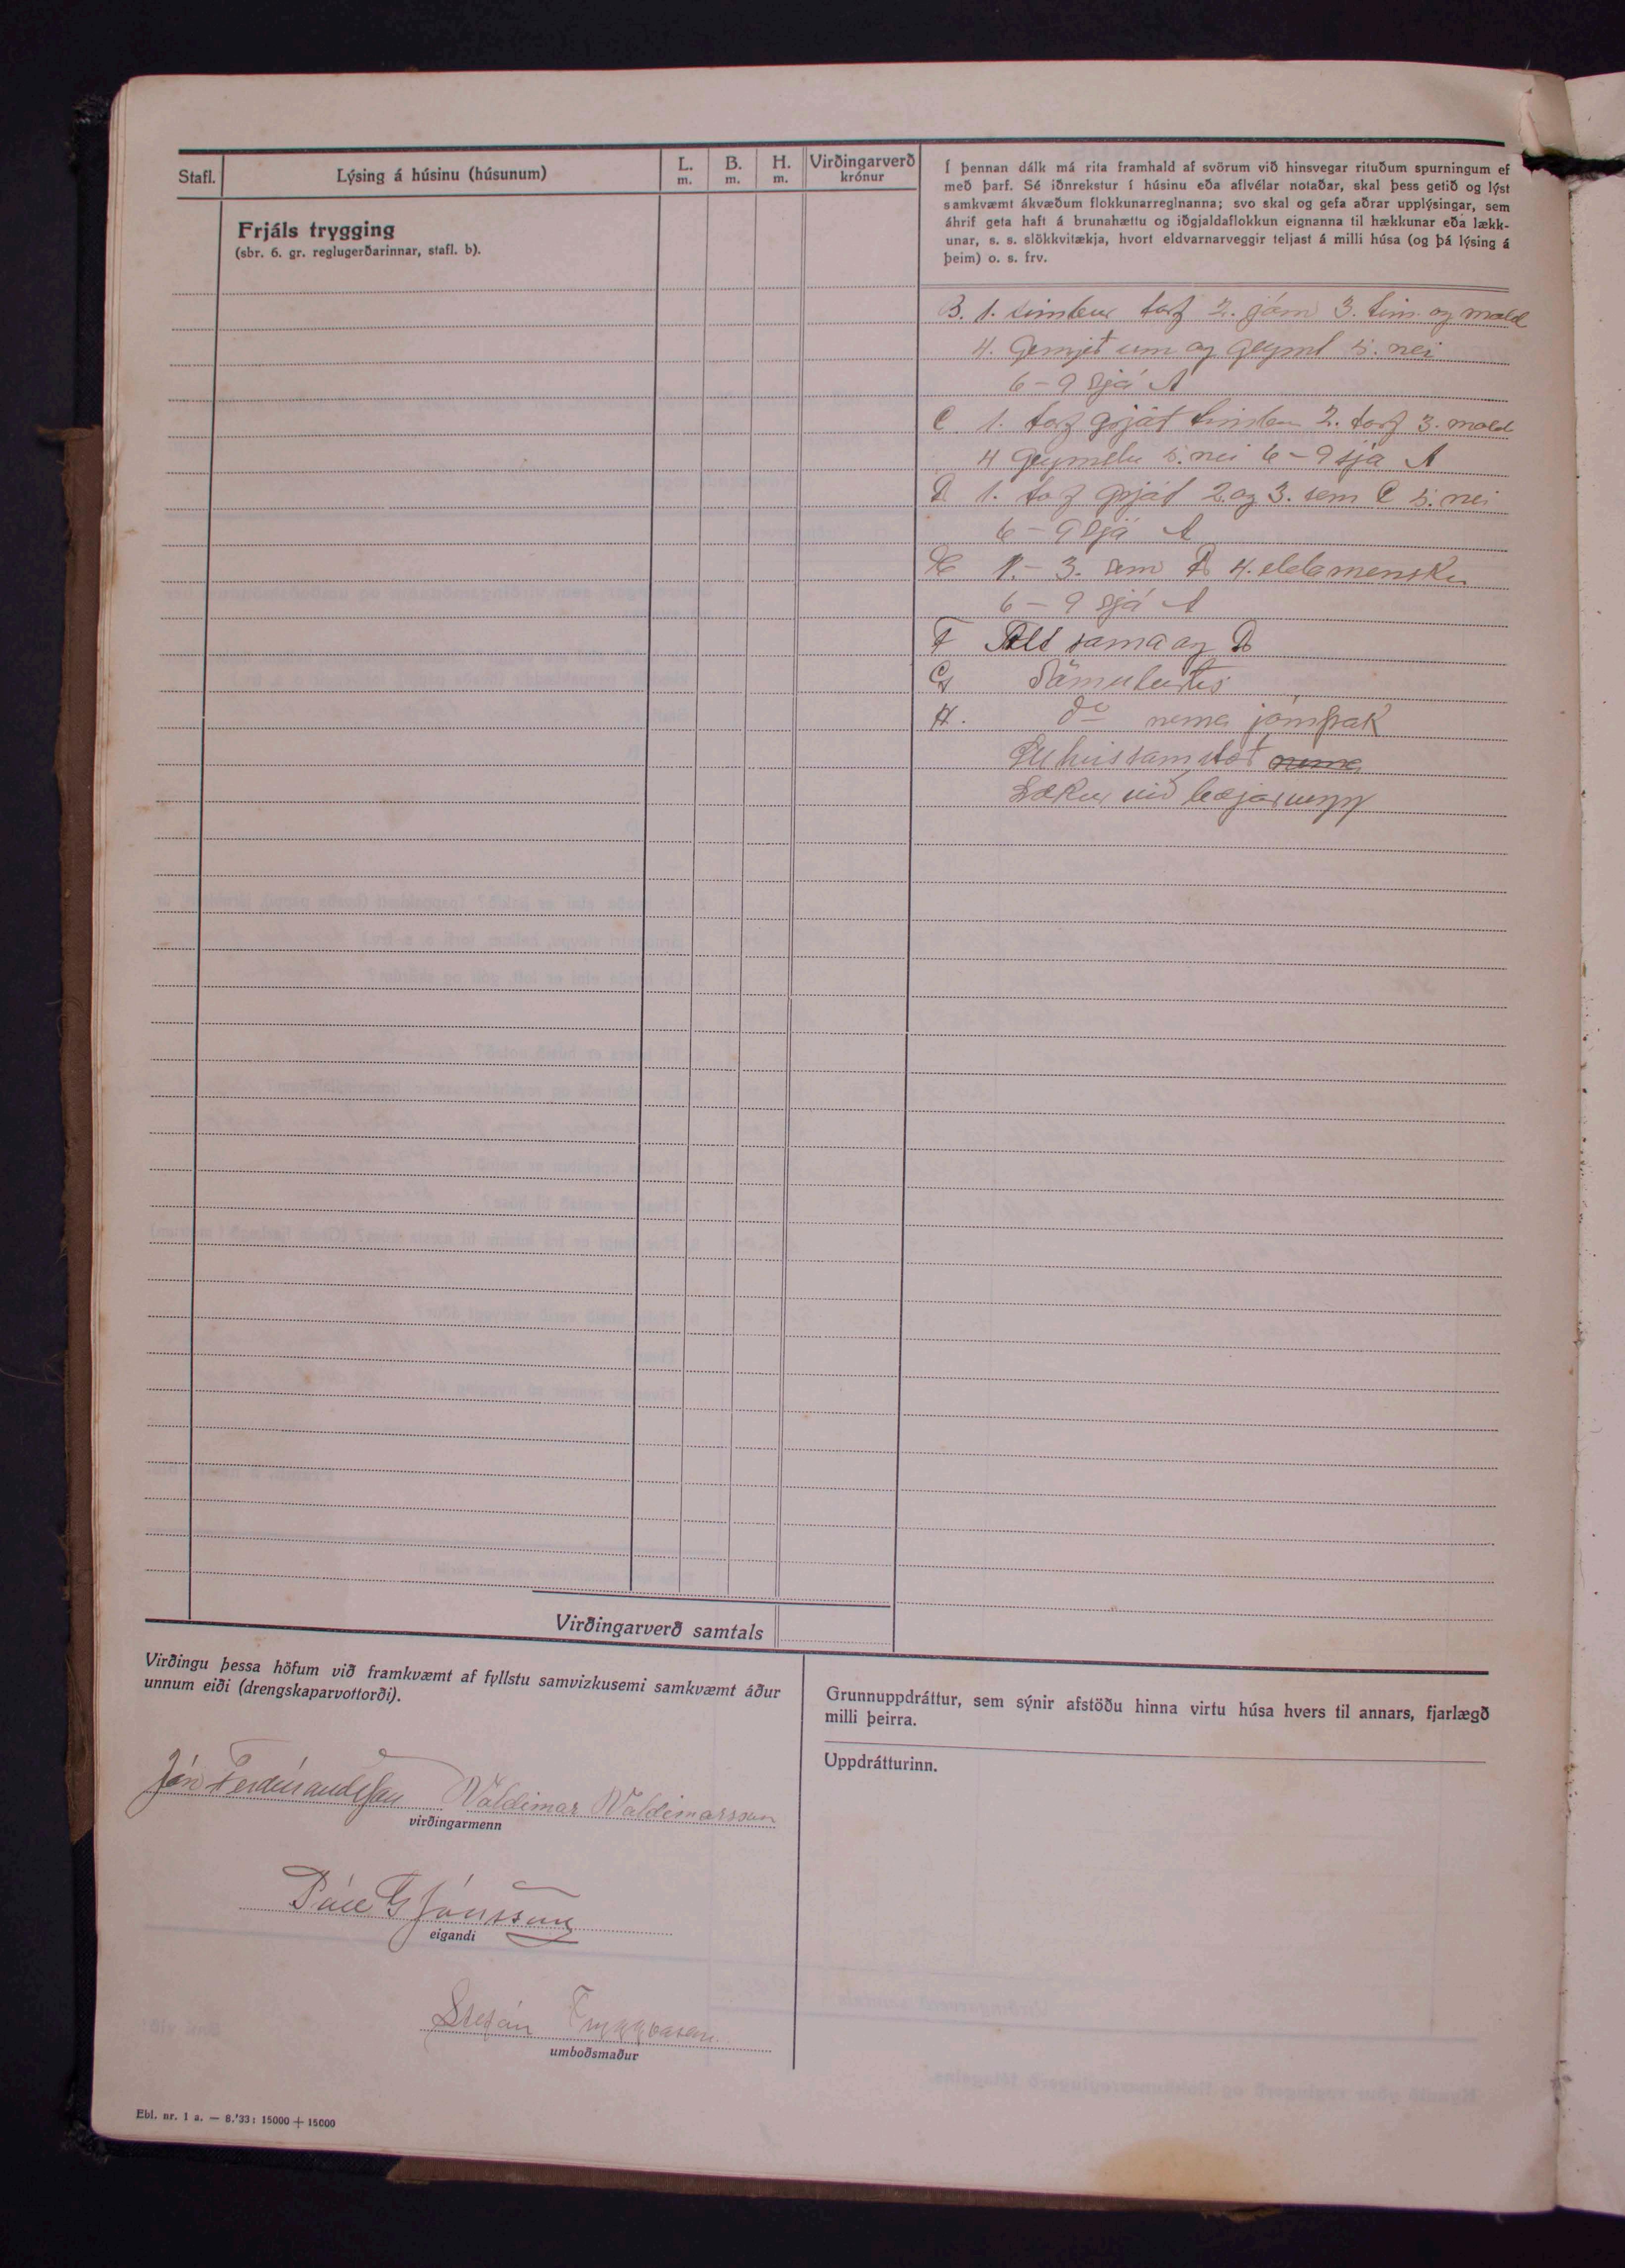 Stafl.
Lýsing á húsinu (húsunum)
L.
m.
B.
m.
H.
m.
Virðingarverð
krónur
Frjáls trygging
(sbr. 6. gr. reglugerðarinnar, stafl. b).
Í þennan dálk má rita framhald af svörum við hinsvegar rituðum spurningum ef
með þarf. Sé iðnrekstur í húsinu eða aflvélar notaðar, skal þess getið og lýst
samkvæmt ákvæðum flokkunarreglnanna; svo skal og gefa aðrar upplýsingar, sem
áhrif geta haft á brunahættu og iðgjaldaflokkun eignanna til hækkunar eða lækk-
unar, s. s. slökkvitækja, hvort eldvarnarveggir teljast á milli húsa (og þá lýsing á
þeim) o. s. frv.
B. 1. timbur torf 2. járn 3. tim og mold
4. um og geyml 5. nei
6-9 sjá A
C 1. torf grjót timbur 2. torf 3. mold
4 geymslu 5. nei 6-9 sjá A
D 1. torf grjót 2. og 3. sem C 5. nei
6-9 sjá A
E 1.-3. sem D 4. eldamensku
6-9 sjá A
F Alt sama og D
G Sömuleiðis
H. do nema járnþak
Öll hús samstæð
Lækur við bæjarvegg
Virðingarverð samtals
Virðingu þessa höfum við framkvæmt af fyllstu samvizkusemi samkvæmt áður
unnum eiði (drengskaparvottorði).
Jón Ferdínandsson Valdimar Valdimarsson
virðingarmenn
Páll G Jónsson
eigandi
Stefán Tryggvason
umboðsmaður
Grunnuppdráttur, sem sýnir afstöðu hinna virtu húsa hvers til annars, fjarlægð
milli þeirra.
Uppdrátturinn.
Ebl. nr. 1 a. — 8.'33: 15000 + 15000